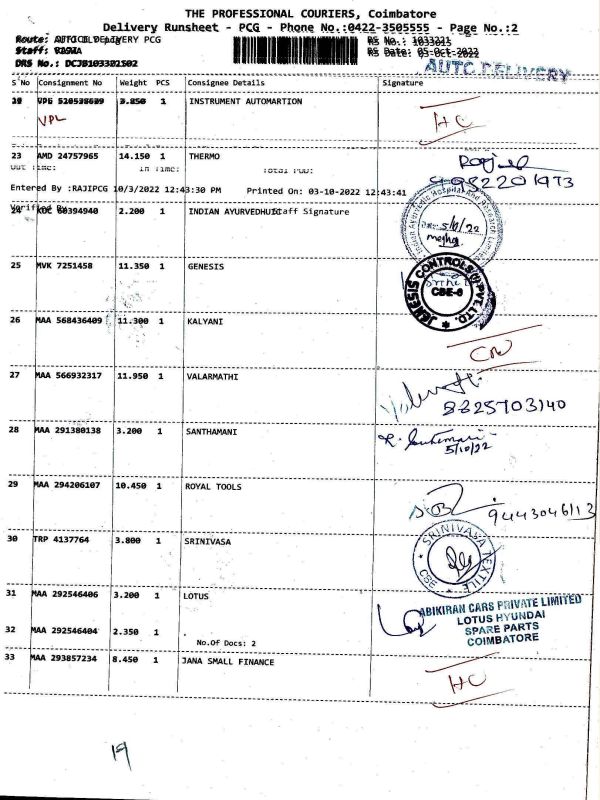 THE PROFESSIONAL COURIERS, Coimbatore
Delivery Runsheet - PCG - Phone No.:0422-3505555 - Page No.:2
Route: DELIVERY PCG
Staff:
RS Date: 05-Oct-2022
DRS No.: DCJB103301502
AUTO DELIVERY
S No Consignment No Weight PCS Consignee Details Signature
3.850 1 INSTRUMENT AUTOMARTION
VPL
HC
23 AMD 24757965 14.150 1 THERMO
Out Time: In Time: Total POD:
Entered By :RAJIPCG 10/3/2022 12:43:30 PM Printed On: 03-10-2022 12:43:41
Verified By Staff Signature
24 KDC 60394940 2.200 1 INDIAN AYURVEDHU
5/10/22
25 MVK 7251458 11.350 1 GENESIS
JENESIS CONTROLS (I) PVT. LTD.
CBE-6
26 MAA 568436409 11.300 1 KALYANI
27 MAA 566932317 11.950 1 VALARMATHI
28 MAA 291380138 3.200 1 SANTHAMANI
5/10/22
29 MAA 294206107 10.450 1 ROYAL TOOLS
9443046113
30 TRP 4137764 3.800 1 SRINIVASA
SRINIVASA TEXTILE
CBE
31 MAA 292546406 3.200 1 LOTUS
ABIKIRAN CARS PRIVATE LIMITED
LOTUS HYUNDAI
SPARE PARTS
COIMBATORE
32 MAA 292546404 2.350 1
No.Of Docs: 2
33 MAA 293857234 8.450 1 JANA SMALL FINANCE
HC
19